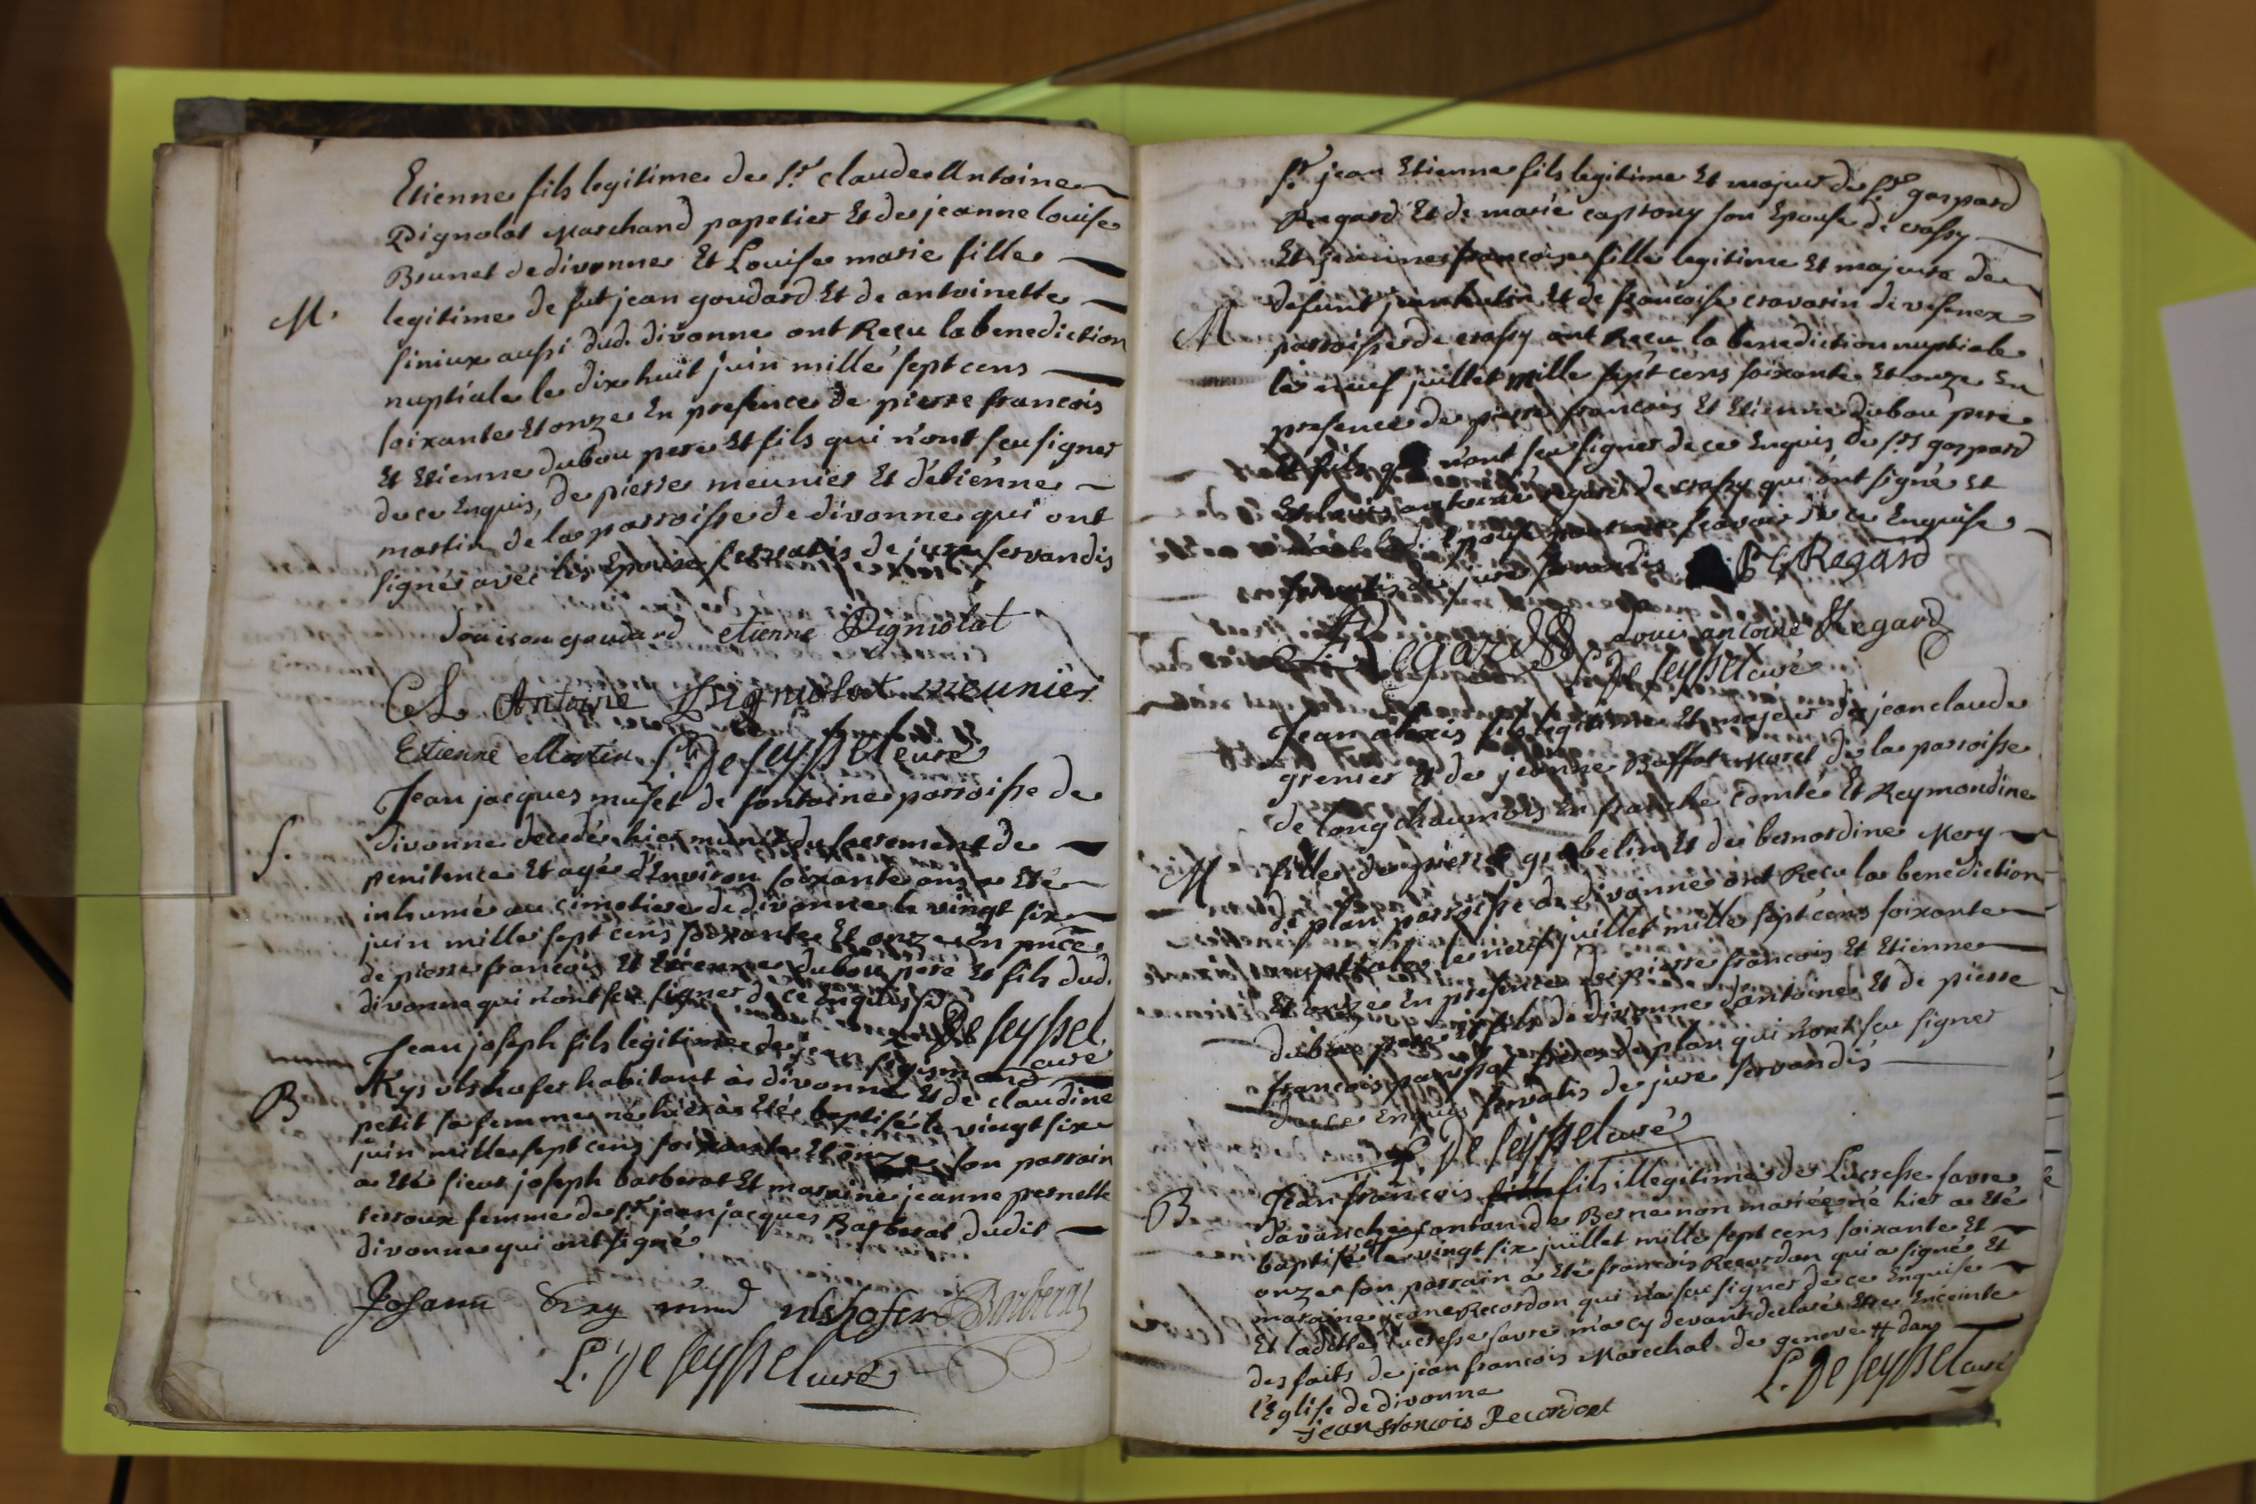 Etienne fils legitime de Sr. claude Antoine
Pignolat Marchand papetier Et de jeanne louise
Brunet de divonne Et Louise marie fille
M.
legitime de fut jean goudard Et de antoinette
siniux aussi dud. divonne ont Reçu la benediction
nuptiale le dix huit juin mille sept cens
soixante Et onze En presence de pierre francois
Et Etienne dubou pere Et fils qui n'ont sçu signer
de ce Enquis, de pierre meunier Et d'etienne
martin de la parroisse de divonne qui ont
signé avec les Epoux servatis de jure servandis
Louison goudard etienne Pigniolat
CL Antoine Pigniolat meunier
Etienne Martin L. De Seyssel curé
Jean jacques muset de fontaine parroisse de
S.
divonne decedé hier munit du sacrement de
penitence Et agé d'Environ soixante ans a Eté
inhumé au cimetiere de divonne le vingt six
juin mille sept cens soixante Et onze En pnce
de pierre francois Et Etienne dubou pere Et fils dud.
divonne qui n'ont sçu signer de ce Enquis
L. De Seyssel
curé
Jean joseph fils legitime de jean sigismond
B
Rys ulshofer habitant à divonne Et de claudine
petit sa femme né hier à Eté baptisé le vingt six
juin mille sept cens soixante Et onze son parrain
a Eté sieur joseph barberat Et marraine jeanne pernette
terroux femme de Sr. jean jacques Barberat dudit
divonne qui ont signé
Johann ulshofer Barberat
L. De Seyssel curé
Sr. jean Etienne fils legitime Et majeur de Sr. gaspard
Regard Et de marie castony son Epouse de crassy
Et jeanne francoise fille legitime Et majeure de
M
defunt Et de francoise cravarin de vesenex
parroisse de crassy ont Reçu la benediction nuptiale
le neuf juillet Mille sept cens soixante Et onze En
presence de pierre francois Et Etienne dubou pere
Et fils qui n'ont sçu signer de ce Enquis de Srs gaspard
Et louis antoine regard de crassy qui ont signé Et
de ce Enquise
servatis de jure servandis Regard
Regard Louis antoine Regard
L. De Seyssel curé
Jean alexis fils legitime Et majeur de jean claude
grenier Et de jeanne Baffot Morel de la parroisse
de longchaumois En franche comté Et Reymondine
M
fille de pierre grobelin Et de bernardine Mery
de plan parroisse de divonne ont Reçu la benediction
nuptiale le neuf juillet mille sept cens soixante
Et onze En presence de pierre francois Et Etienne
dubou pere Et fils de divonne d'antoine Et de pierre
francois panissot freres de plan qui n'ont sçu signer
de ce Enquis servatis de jure servandis
L. De Seyssel curé
B
Jean francois fils illegitime de Lucresse favre
d'avanche canton de Berne non mariée né hier a Eté
baptisé le vingt six juillet mille sept cens soixante Et
onze son parrain a Eté francois Recordon qui a signé Et
maraine jeane Recordon qui n'a sçu signer de ce Enquise
Et laditte Lucresse favre m'a cy devant declaré Etre Enceinte
des faits de jean francois Marechal de geneve # dans
l'Eglise de divonne L. De Seyssel curé
jean francois Recordont